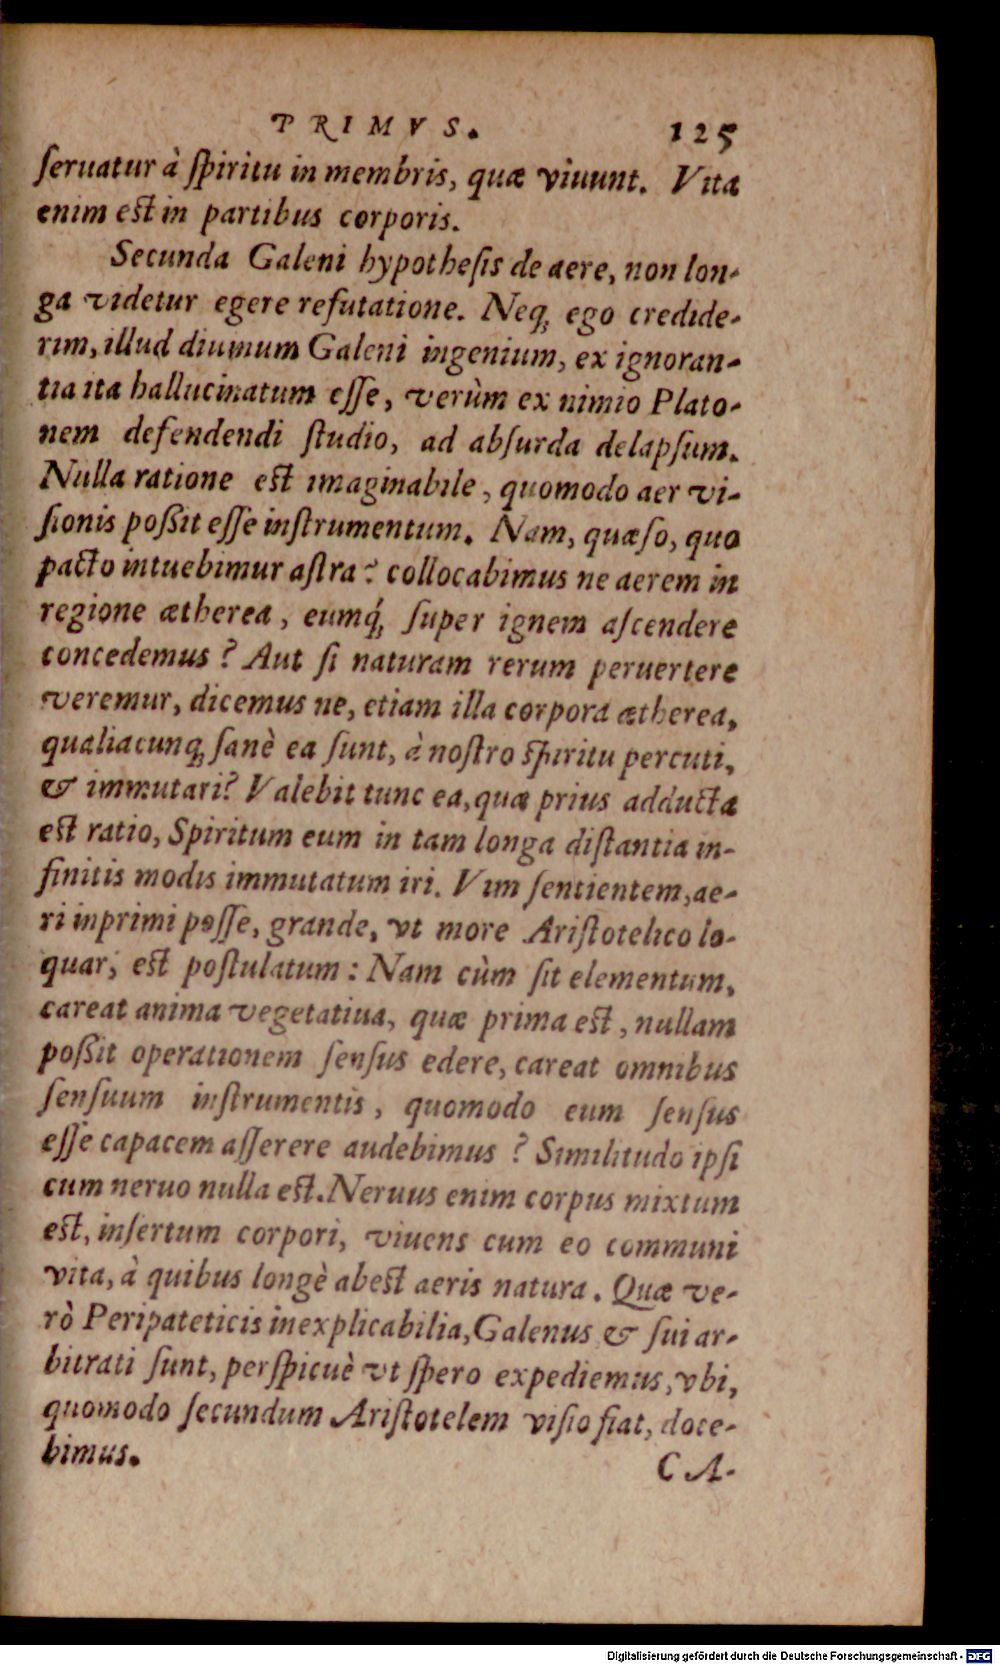 PRIMVS. 125
ſeruatur à ſpiritu in membris, quæ viuunt. Vita
enim est in partibus corporis.
Secunda Galeni hypotheſis de aere, non lon-
ga videtur egere refutatione. Neq; ego credide-
rim, illud diuinum Galeni ingenium, ex ignoran-
tia ita hallucinatum eſſe, verùm ex nimio Plato-
nem defendendi ſtudio, ad abſurda delapſum.
Nulla ratione est imaginabile, quomodo aer vi-
ſionis poßit eſſe inſtrumentum. Nam, quæſo, quo
pacto intuebimur aſtra? collocabimus ne aerem in
regione ætherea, eumq́; ſuper ignem aſcendere
concedemus? Aut ſi naturam rerum peruertere
veremur, dicemus ne, etiam illa corpora ætherea,
qualiacunq; ſanè ea ſunt, à noſtro ſpiritu percuti,
& immutari? Valebit tunc ea, quæ prius adducta
est ratio, Spiritum eum in tam longa diſtantia in-
finitis modis immutatum iri. Vim ſentientem, ae-
ri inprimi poſſe, grande, vt more Ariſtotelico lo-
quar, est poſtulatum: Nam cùm ſit elementum,
careat anima vegetatiua, quæ prima est, nullam
poßit operationem ſenſus edere, careat omnibus
ſenſuum inſtrumentis, quomodo eum ſenſus
eſſe capacem aſſerere audebimus? Similitudo ipſi
cum neruo nulla est. Neruus enim corpus mixtum
est, inſertum corpori, viuens cum eo communi
vita, à quibus longè abest aeris natura. Quæ ve-
rò Peripateticis inexplicabilia, Galenus & ſui ar-
bitrati ſunt, perſpicuè vt ſpero expediemus, vbi,
quomodo ſecundum Ariſtotelem viſio fiat, doce-
bimus.
CA-
Digitalisierung gefördert durch die Deutsche Forschungsgemeinschaft - DFG